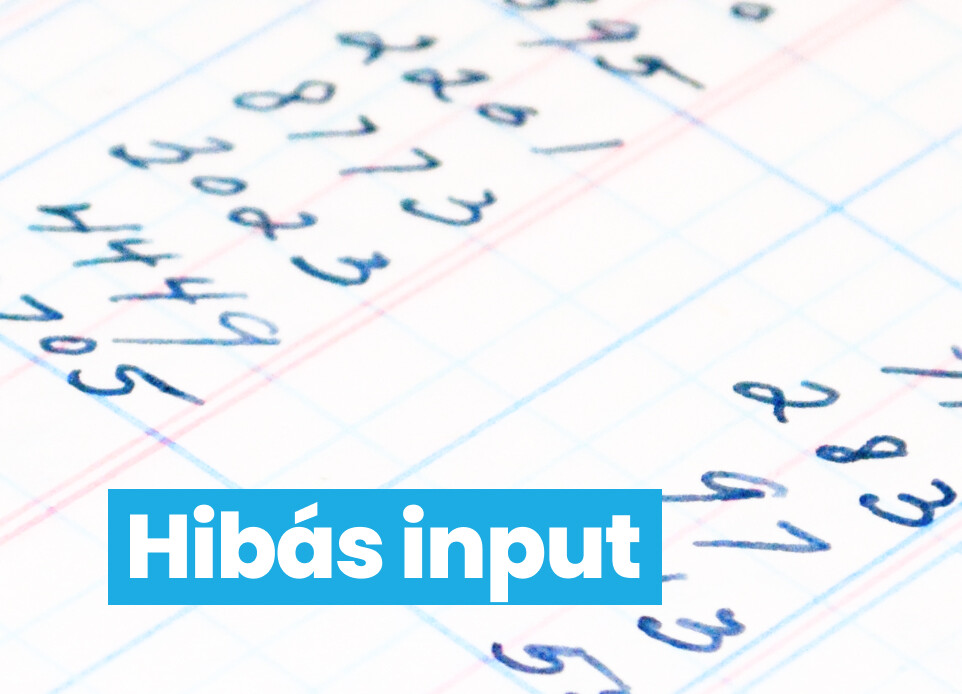 395
2201
8773
3023
4449
705
283
97
3
5
Hibás input